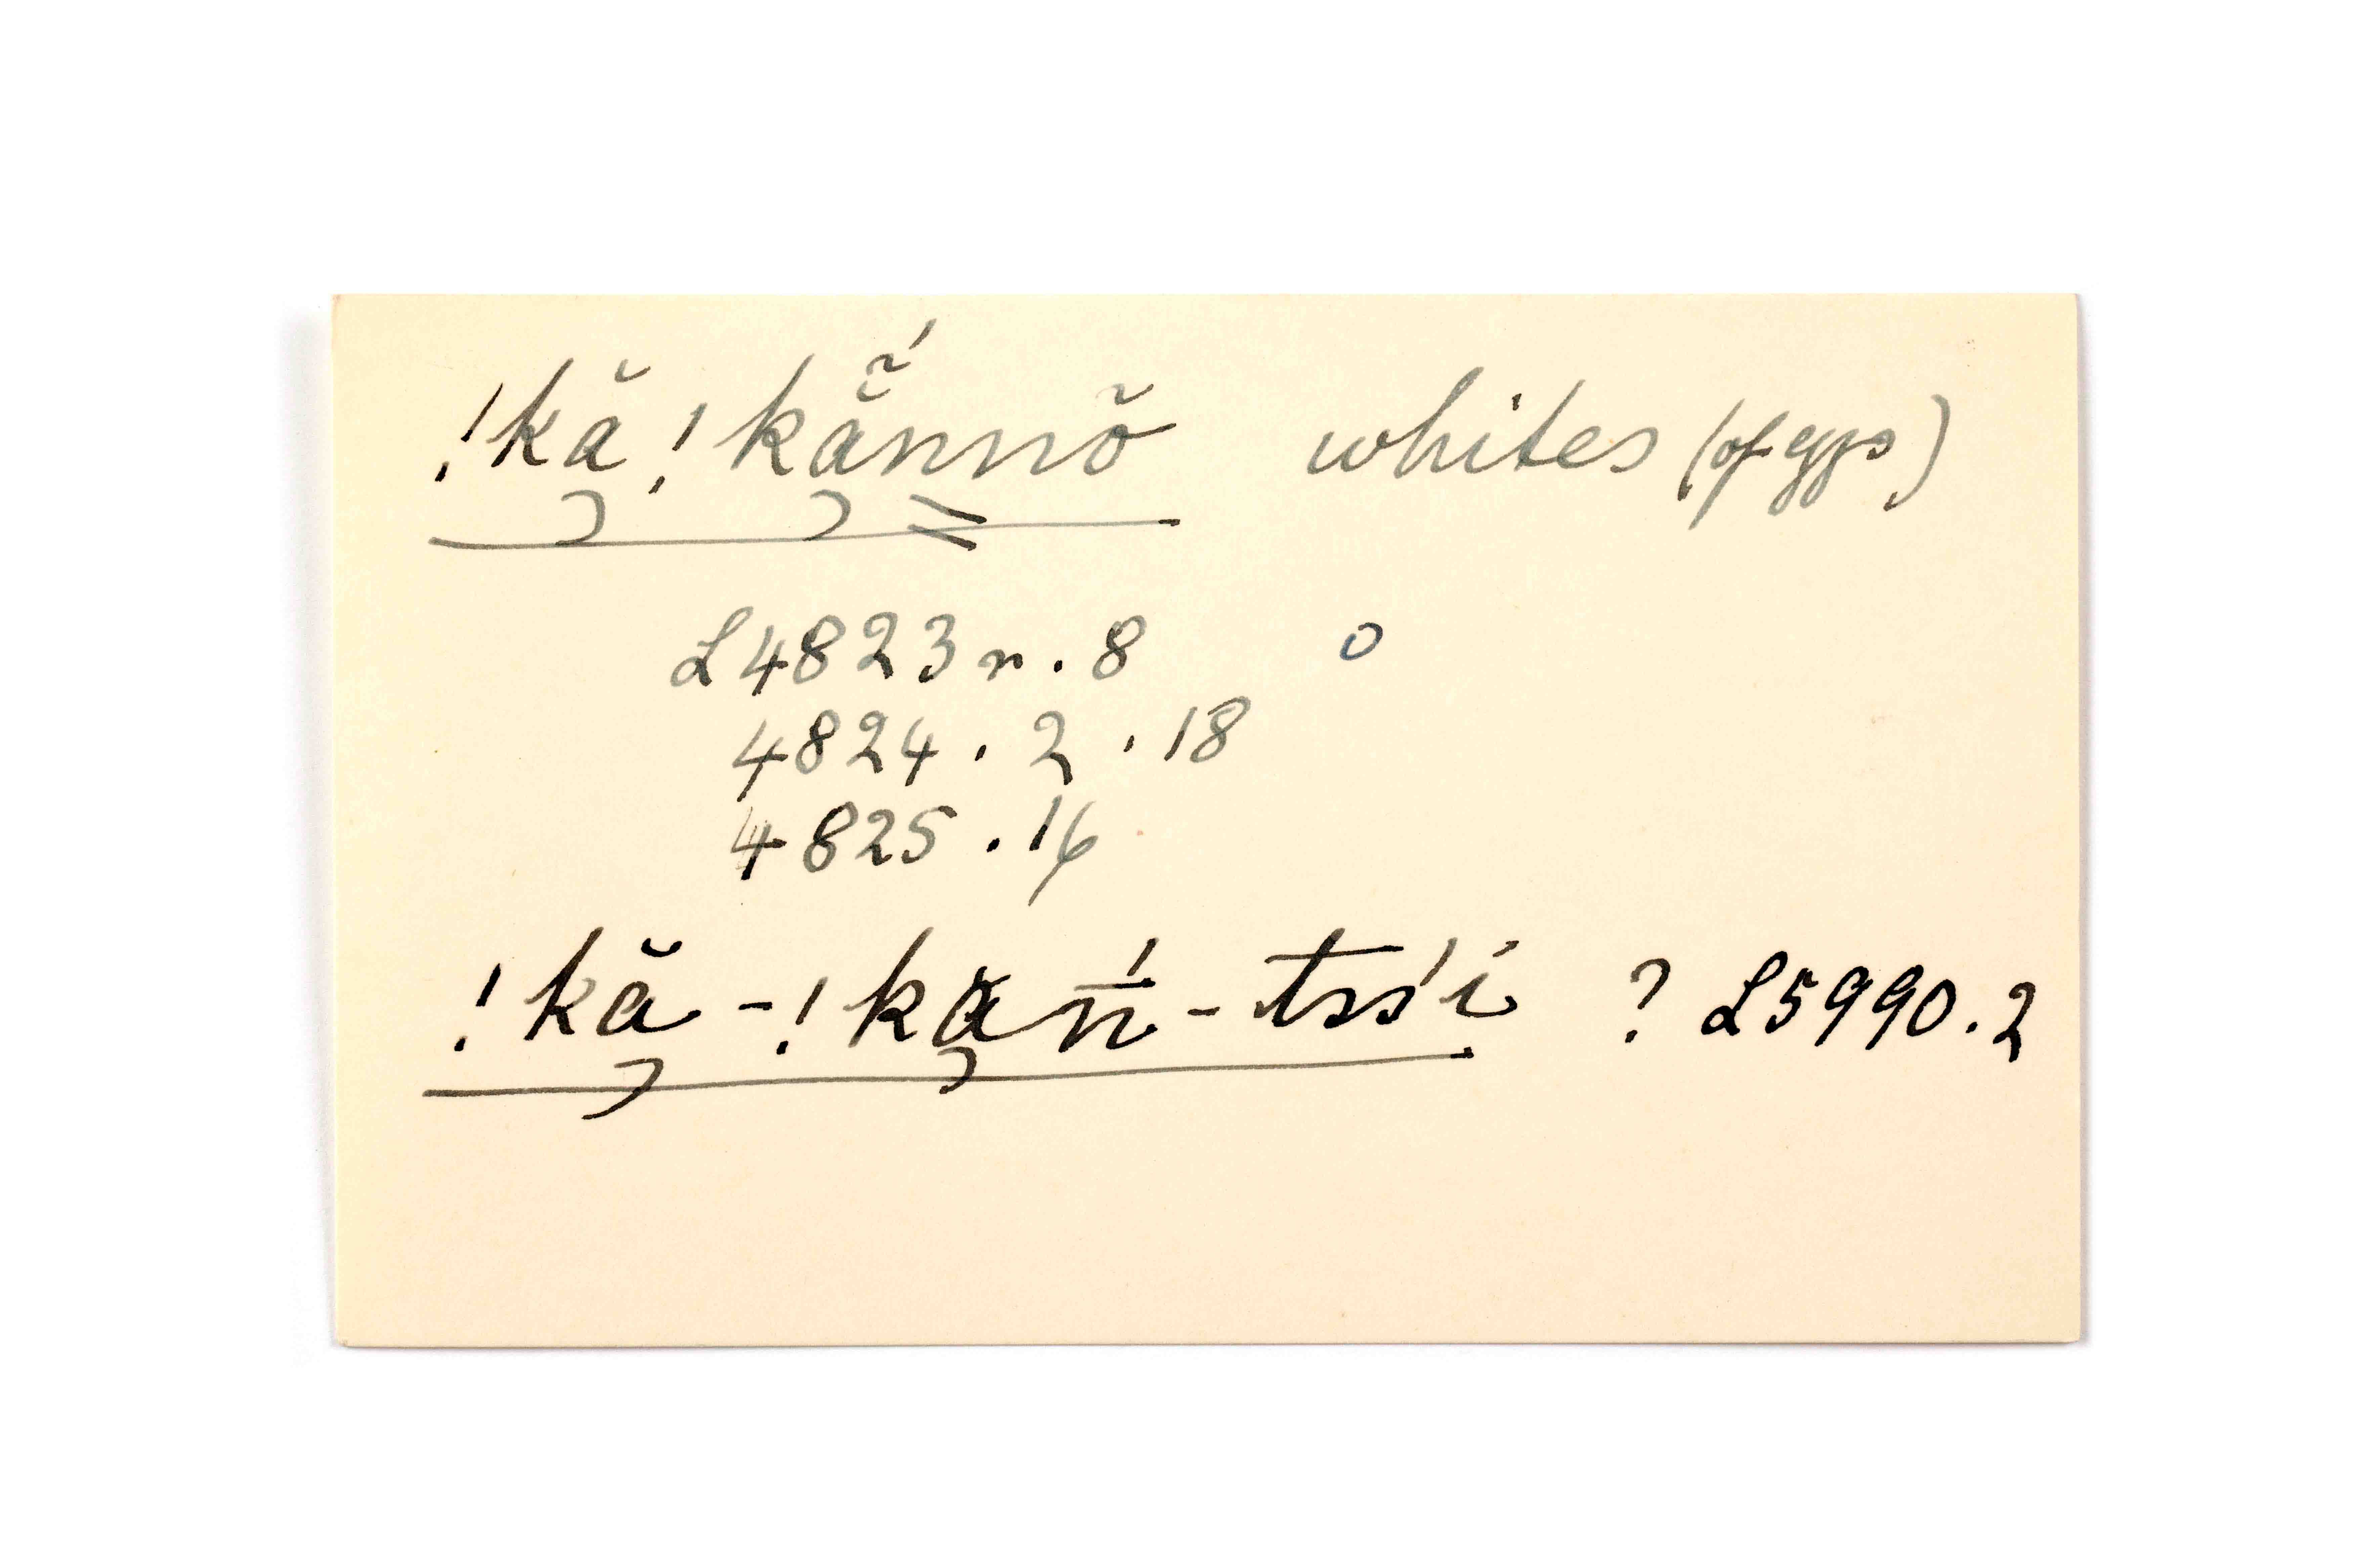 !kă̦!kẵ̦́nnŏ whites (of eggs)
L4823r.8 o
4824.2.18
4825.16
!kă̦-!kă̦n̄́-tss'i ? L5990.2